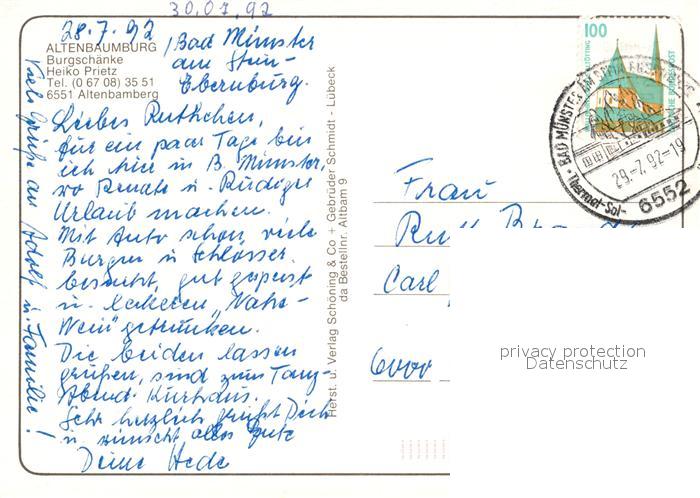 30.07.92
28.7.92
ALTENBAUMBURG
Burgschänke
Heiko Prietz
Tel. (0 67 08) 35 51
6551 Altenbamberg
Bad Münster
am Stein-
Ebernburg.
Liebes Ruthchen,
für ein paar Tage bin
ich hier in B. Münster,
wo Renate u. Rüdiger
Urlaub machen.
Mit Auto schon viele
Burgen u. Schlösser
besucht, gut gespeist
u. leckeren „Nahe-
Wein" getrunken.
Die beiden lassen
grüßen, sind zum Tanz-
Abend Kurhaus.
Sehr herzlich grüßt Dich
u. wünscht alles Gute
Deine Hede
Viele Grüße an Adolf u. Familie!
Herst. u. Verlag Schöning & Co + Gebrüder Schmidt - Lübeck
da Bestellnr. Altbam 9
100
BAD MÜNSTER AM STEIN-EBERNBURG
29.-7.92-19
Thermal-Sol-
6552
Frau
Carl
privacy protection
Datenschutz